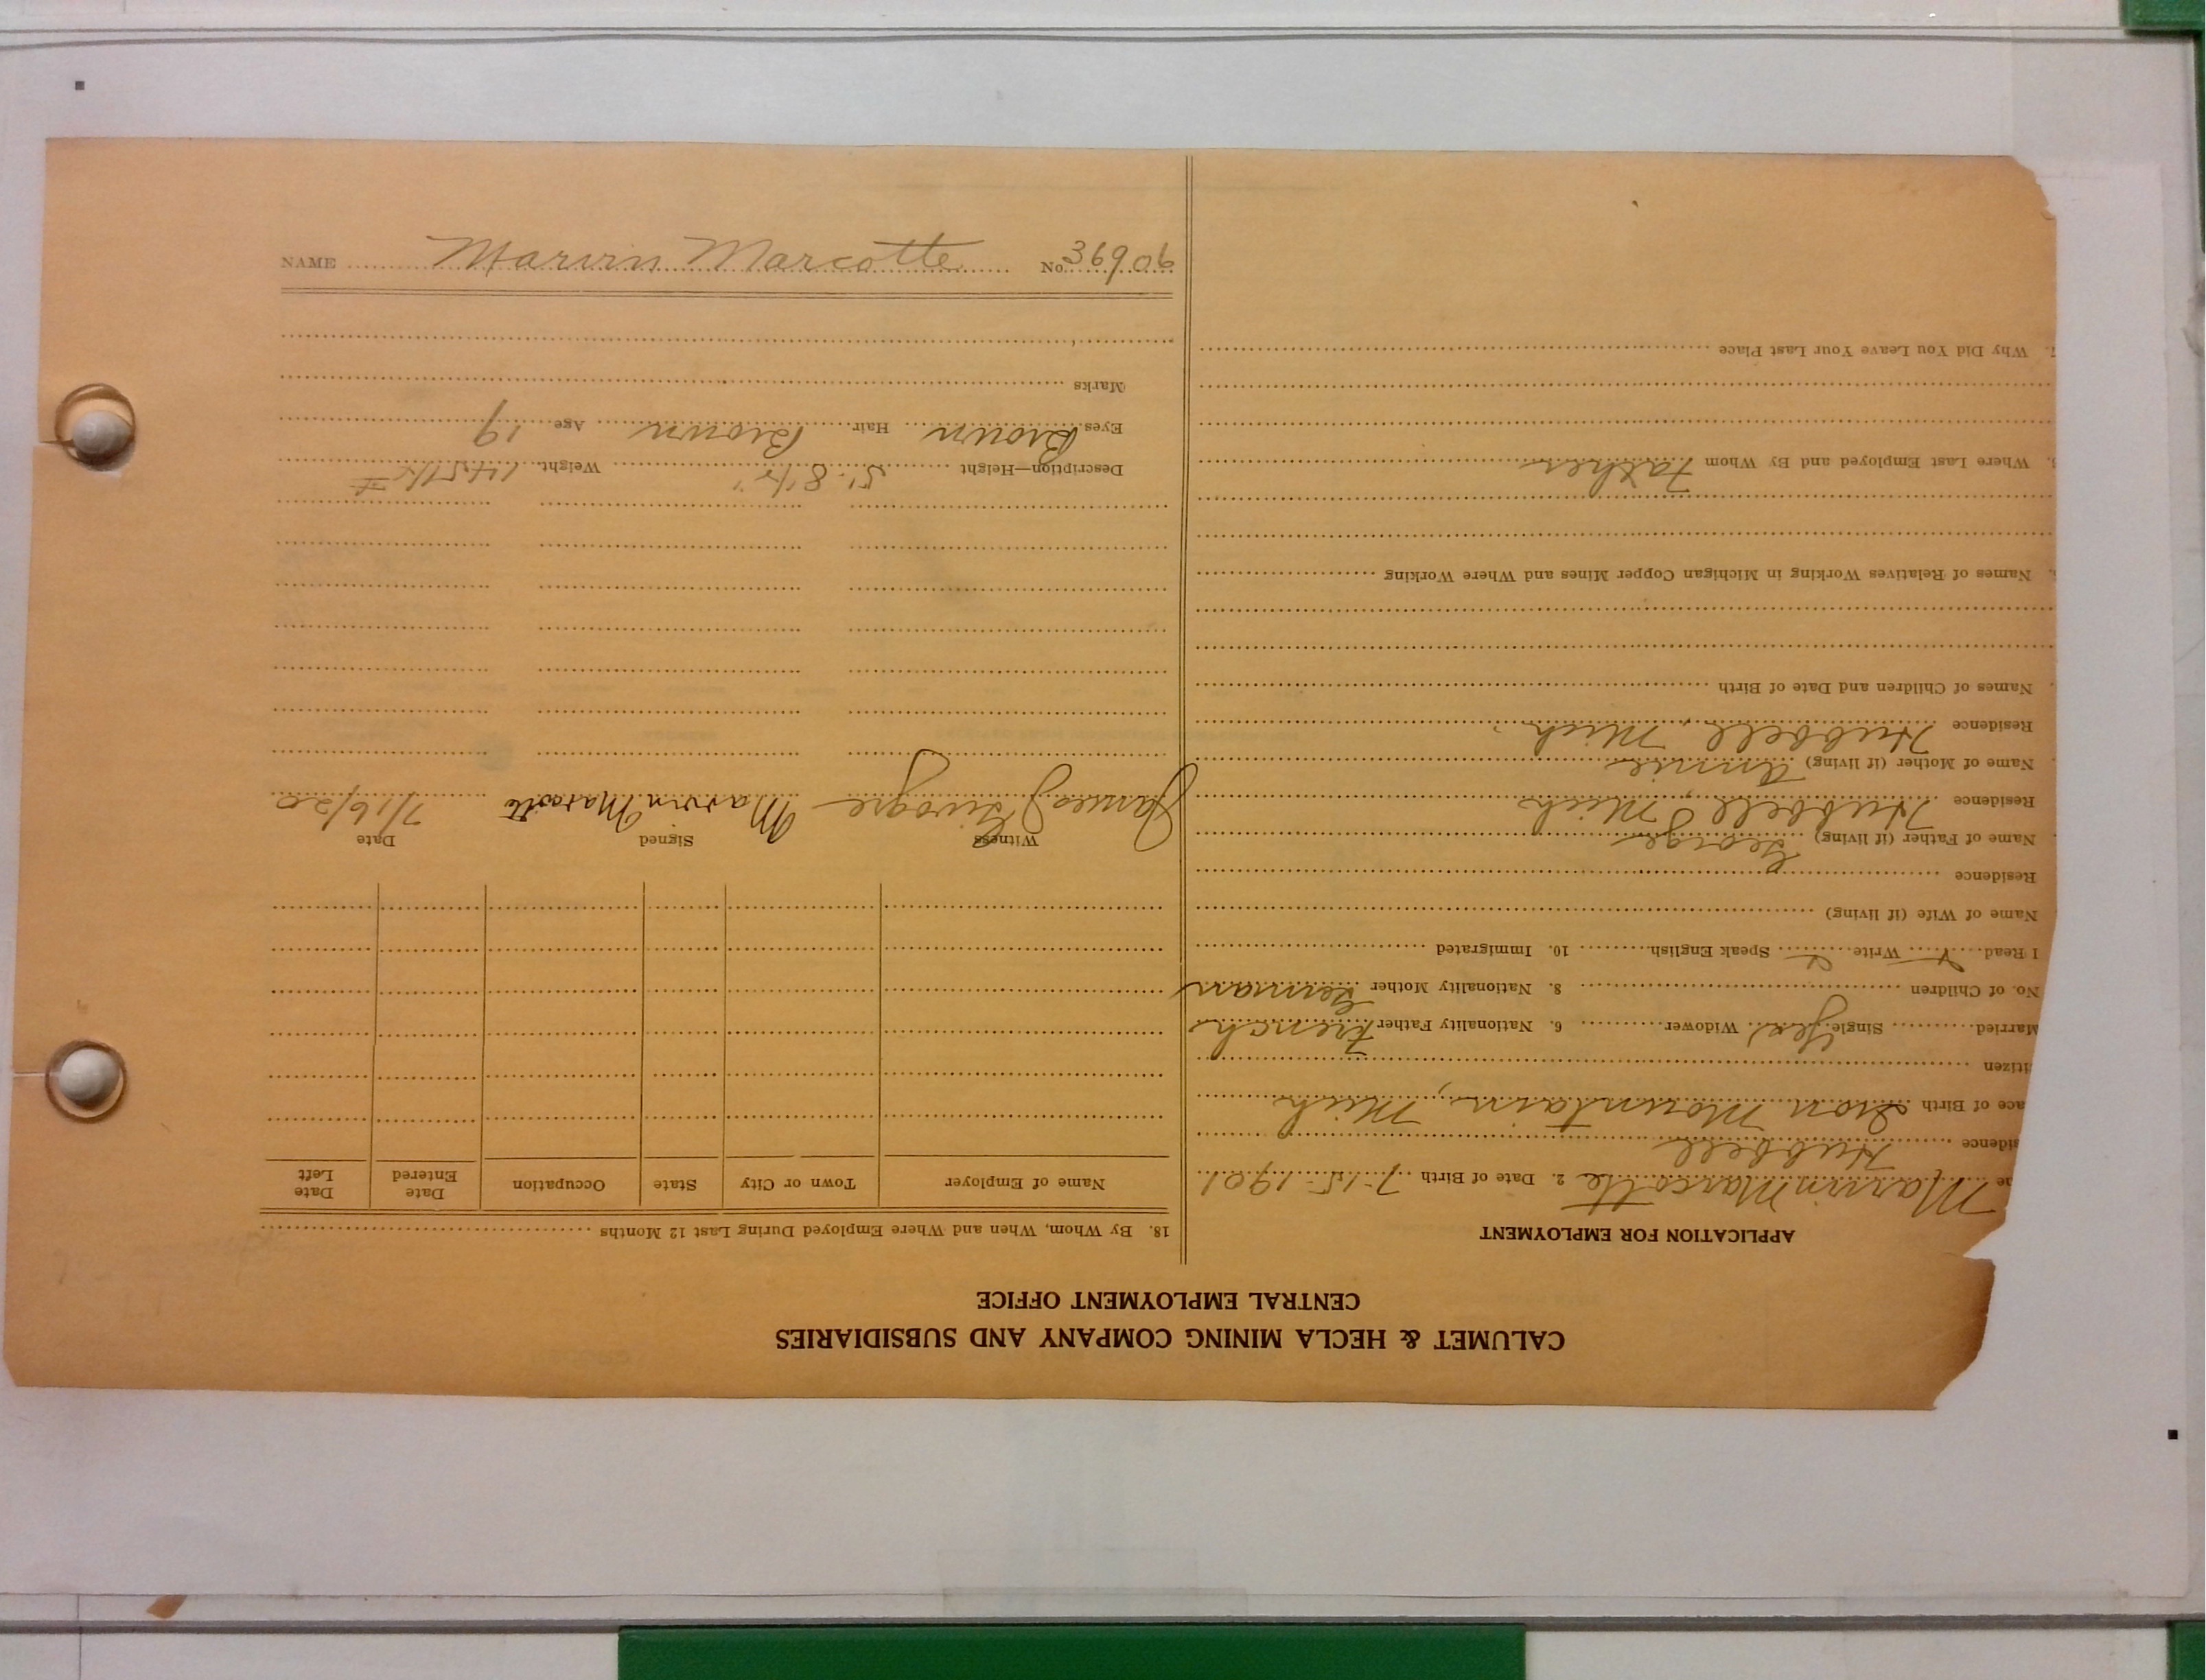 NAME Marvin Marcotte No. 36906
CALUMET & HECLA MINING COMPANY AND SUBSIDIARIES
CENTRAL EMPLOYMENT OFFICE
APPLICATION FOR EMPLOYMENT
me Marvin Marcotte 2. Date of Birth 7-15-1901
sidence Hubbell
ace of Birth Iron Mountain, Mich
itizen
Married Single Yes Widower 6. Nationality Father French
No. of Children 8. Nationality Mother German
I Read Write Speak English 10. Immigrated
Name of Wife (if living)
Residence
Name of Father (if living) George
Residence Hubbell, Mich
Name of Mother (if living) Annie
Residence Hubbell, Mich.
Names of Children and Date of Birth
Names of Relatives Working in Michigan Copper Mines and Where Working
Where Last Employed and By Whom Father
Why Did You Leave Your Last Place
18. By Whom, When and Where Employed During Last 12 Months
Name of Employer Town or City State Occupation Date Entered Date Left
Witness Signed Date
James Marvin Marcotte 7/16/20
Description—Height 5'-8 1/2" Weight 145 #
Eyes Brown Hair Brown Age 19
Marks